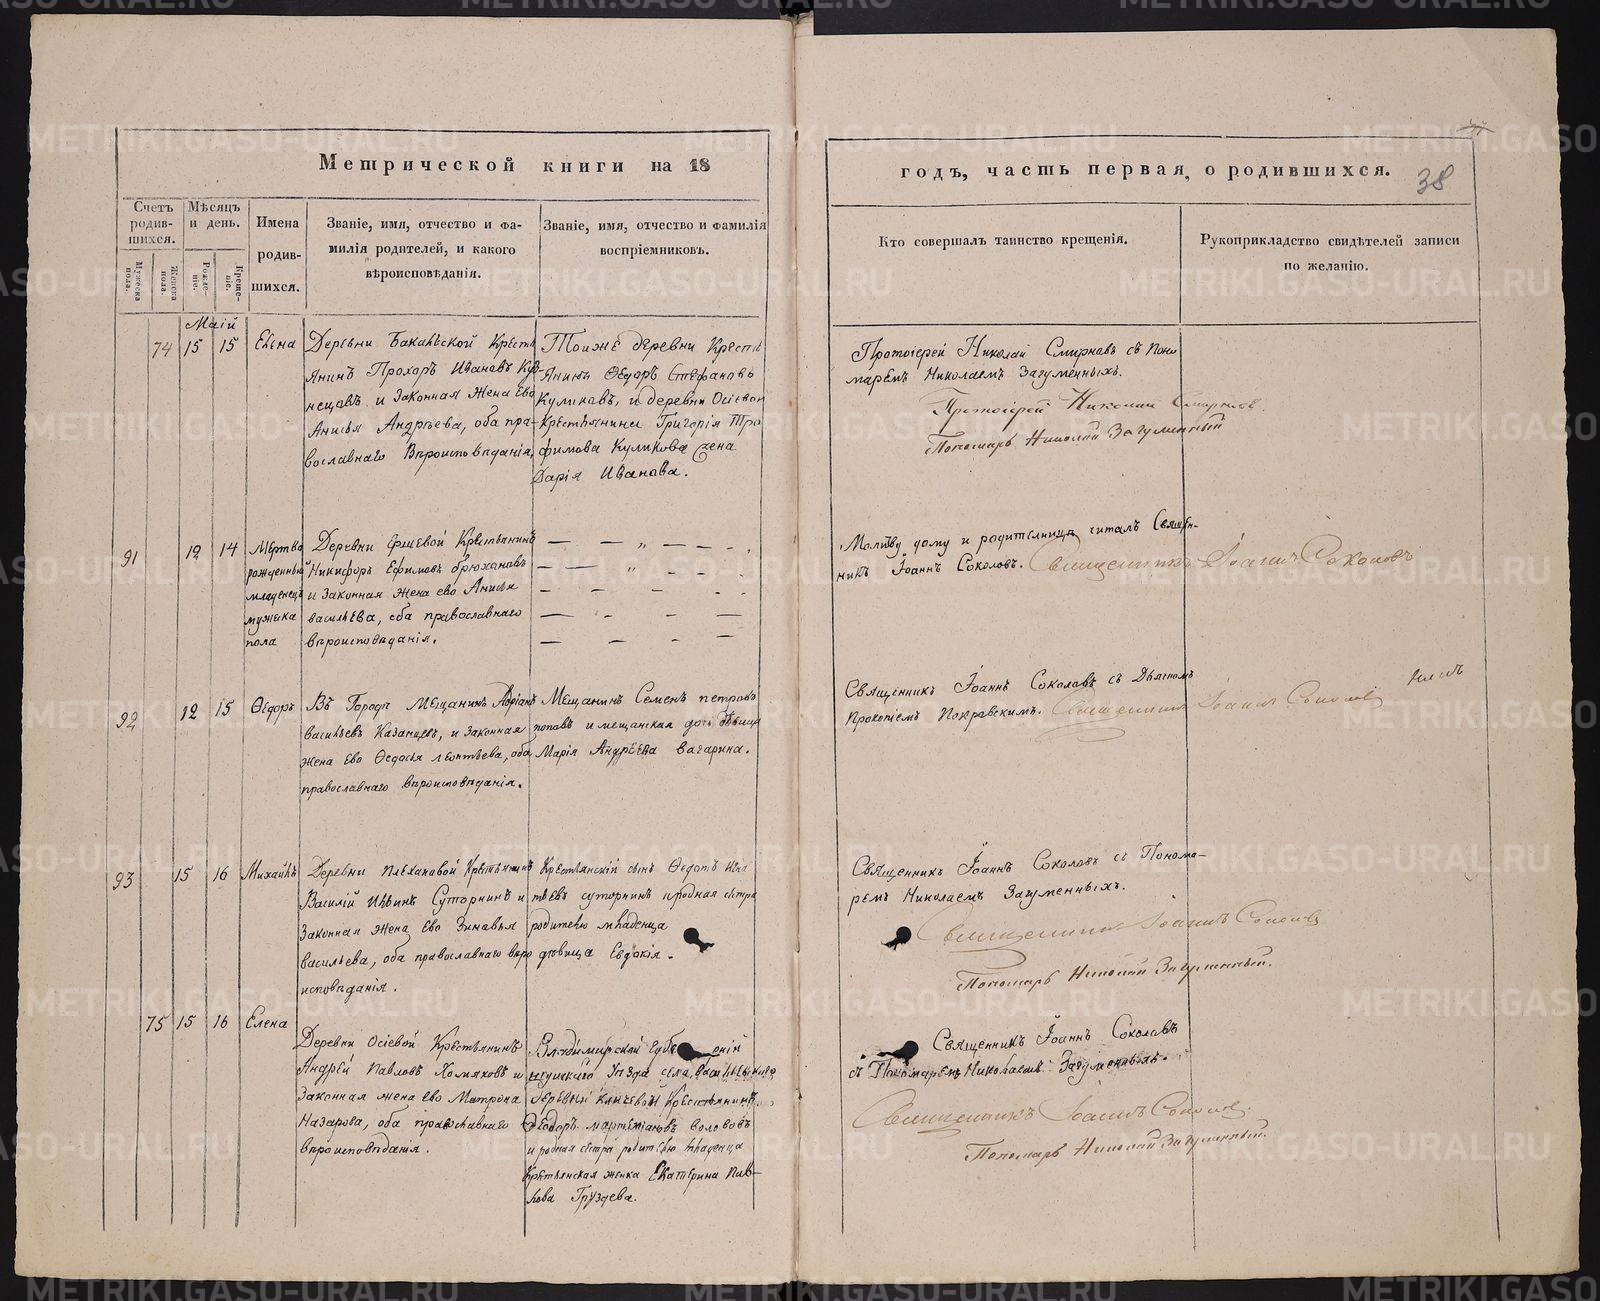 Метрической книги на 18
годъ, часть первая, о родившихся.
38
Счетъ родив-
шихся.
Мѣсяцъ
и день.
Имена
родив-
шихся.
Званіе, имя, отчество и фа-
милія родителей, и какого
вѣроисповѣданія.
Званіе, имя, отчество и фамилія
воспріемниковъ.
Кто совершалъ таинство крещенія.
Рукоприкладство свидѣтелей записи
по желанію.
Мужеска
пола.
Женска
пола.
Рожде-
ніе.
Креще-
ніе.
Маій
74 15 15 Елена
Деревни Крестья
янинъ Прохоръ Ивановъ
и законная жена ево
Анисья Андреева, оба пра-
вославнаго вѣроисповѣданія
Тойже деревни Кресть
янинъ Ѳедоръ Стефановъ
Куликовъ, и деревни Осіевой
Крестьянина Григорія Тро
фимова Куликова жена
Дарія Иванова.
Протоіерей Николай Смирновъ съ поно
маремъ Николаемъ Загуменныхъ.
Протоіерей Николай Смирновъ.
Пономарь Николай Загуменный
91 12 14 Мертво
рожденный
младенецъ
мужеска
пола
Деревни Крестьянинъ
Никифоръ Ефимовъ Брюхановъ
и законная жена ево Анисья
васильева, оба православнаго
вѣроисповѣданія.
Молитву дому и родительницѣ читалъ Священ-
никъ Іоаннъ Соколовъ. Священникъ Іоаннъ Соколовъ
92 12 15 Ѳедоръ
Въ Городѣ Мещанинъ Адріанъ
васильевъ Казанцевъ, и законная
жена ево Ѳедосья леонтьева, оба
православнаго вѣроисповѣданія.
Мещанинъ Семенъ петровъ
поповъ и мещанская дочь дѣвица
Марія Андреева вагарина.
Священникъ Іоаннъ Соколовъ съ Дьякономъ
Прокопіемъ Покравскимъ. Священникъ Іоаннъ Соколовъ
93 15 16 Михайлъ
Деревни Плехановой Крестьянинъ
Василій Ильинъ Суторминъ и
законная жена ево Зиновья
васильева, оба православнаго вѣро
исповѣданія.
Крестьянскій сынъ Ѳедотъ
суторминъ и родная сестра
родителю младенца
дѣвица Евдокія.
Священникъ Іоаннъ Соколовъ съ Понома-
ремъ Николаемъ Загуменныхъ.
Священникъ Іоаннъ Соколовъ
Пономарь Николай Загуменный.
75 15 16 Елена
Деревни Осіевой Крестьянинъ
Андрей Павловъ Хомяковъ и
законная жена ево Матрона
Назарова, оба православнаго
вѣроисповѣданія.
Владимирской
уѣзда села
деревни Ключевой Крестьянинъ
Ѳеодоръ волововъ
и родная сестра родителю младенца
Крестьянская женка Екатерина Пав-
лова Груздева.
Священникъ Іоаннъ Соколовъ
съ Пономаремъ Николаемъ Загуменныхъ.
Священникъ Іоаннъ Соколовъ.
Пономарь Николай Загуменный.
METRIKI.GASO-URAL.RU